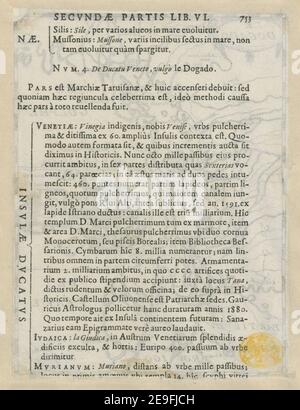 SECVNDÆ PARTIS LIB. VI. 753
Silis: Sile, per varios alueos in mare euoluitur.
NÆ. Mussonius: Mussone, variis incilibus sectus in mare, non
tam euoluitur quàm spargitur.
NVM. 4. De Ducatu Veneto, vulgò le Dogado.
PARS est Marchiæ Taruisanæ, & huic accenseri debuit: sed
quoniam hæc regiuncula celeberrima est, ideò methodi caussa
hæc pars à toto reuellenda fuit.
VENETIÆ: Vinegia indigenis, nobis Venise, vrbs pulcherri-
ma & ditissima ex 60. ampliùs Insulis contexta est. Quo-
modo autem formata sit, & quibus incrementis aucta sit
diximus in Historicis. Nunc octo mille passibus eius pro-
currit ambitus, in sex partes distributa quas Sexterias vo-
cant, 64. parœcias
mensuit: 460. partim
gneos, quorum pulcherrimus
vulgò pons an. 1591. ex
lapide Istriano ductus: canalis ille est Hic
templum D. Marci pulcherrimum tum ex marmore, item
& area D. Marci, thesaurusque pulcherrimus vbi duo cornua
Monocerotum, seu piscis Borealis: item Bibliotheca Bes-
sarionis. Cymbarum hic 8. millia numerantur; nam lin-
tribus omnem in partem circumferri potes. Armamenta-
rium 2. milliarium ambitus, in quo cccc artifices quoti-
die ex publico stipendium accipiunt: iuxtà locus Tana,
dictus rudentum & velorum officina; de eo suprà in Hi-
storicis. Castellum Oliuonense est Patriarchæ sedes. Gau-
ricus Astrologus pollicetur hanc duraturam annos 1880.
Quo tempore ait ex Insula continentem futuram: Sana-
zarius eam Epigrammate verè aureo laudauit.
IVDAICA: la Giudeca, in Austrum Venetiarum splendidis æ-
dificiis exculta, & hortis: Euripo 400. passuum ab vrbe
dirimitur.
MYRIANVM: Murano, distans ab vrbe mille passibus
INSVLÆ DVCATVS